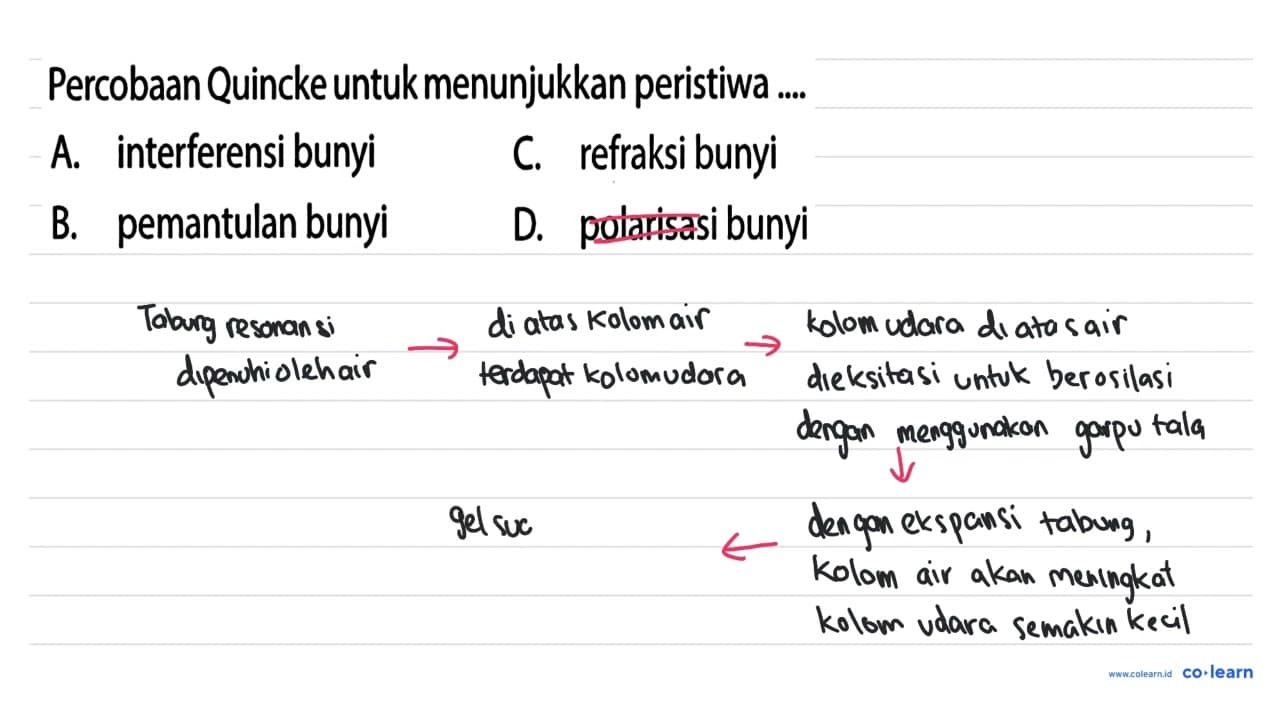 Percobaan Quincke untuk menunjukkan peristiwa ....
A. interferensi bunyi C. refraksi bunyi
B. pemantulan bunyi D. polarisasi bunyi
Tabung resonansi
dipenuhi oleh air
di atas kolom air
terdapat kolom udara
kolom udara di atas air
dieksitasi untuk berosilasi
dengan menggunakan garpu tala
dengan ekspansi tabung,
kolom air akan meningkat
kolom udara semakin kecil
gel suc
www.colearn.id co·learn